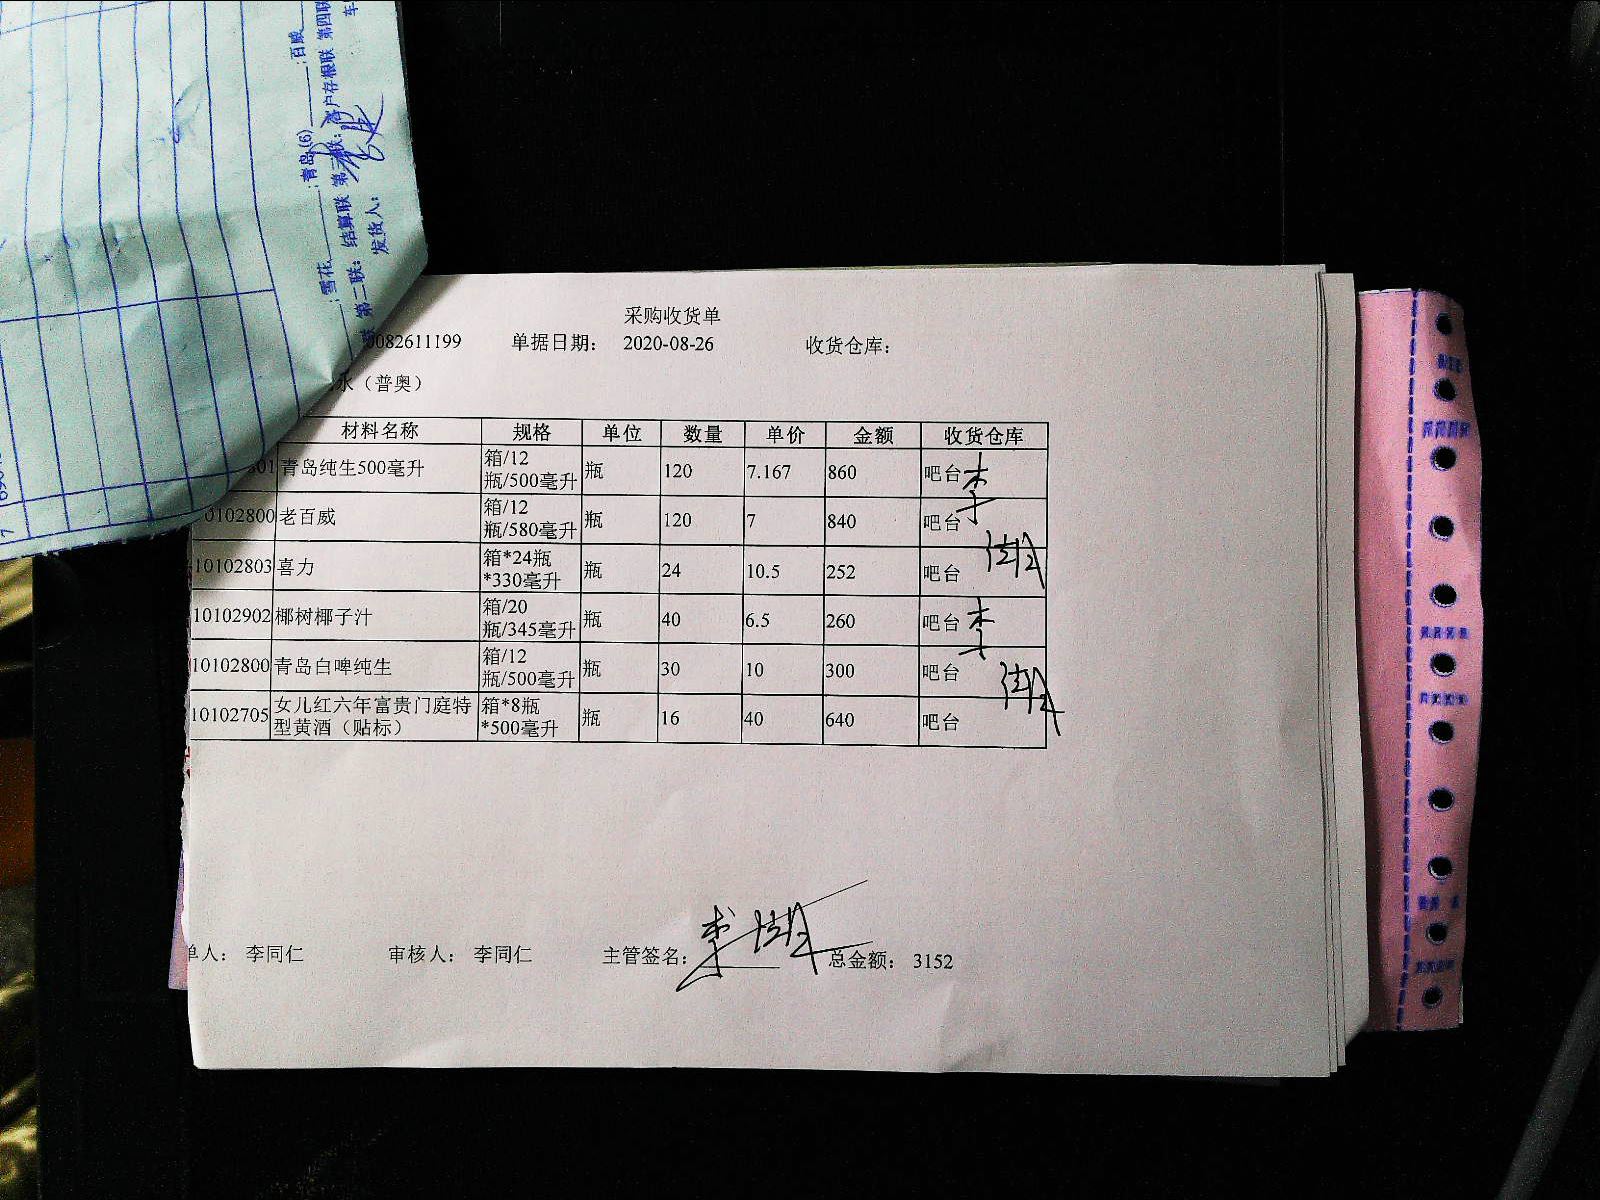 采购收货单
0082611199 单据日期： 2020-08-26 收货仓库：
水（普奥）
材料名称 规格 单位 数量 单价 金额 收货仓库
801 青岛纯生500毫升 箱/12瓶/500毫升 瓶 120 7.167 860 吧台
0102800 老百威 箱/12瓶/580毫升 瓶 120 7 840 吧台
10102803 喜力 箱*24瓶*330毫升 瓶 24 10.5 252 吧台
10102902 椰树椰子汁 箱/20瓶/345毫升 瓶 40 6.5 260 吧台
10102800 青岛白啤纯生 箱/12瓶/500毫升 瓶 30 10 300 吧台
10102705 女儿红六年富贵门庭特型黄酒（贴标） 箱*8瓶*500毫升 瓶 16 40 640 吧台
单人： 李同仁 审核人： 李同仁 主管签名： 总金额： 3152
：雪花 ：青岛(6) ：百威
第二联：结算联 第三联：客户存根联 第四联
发货人： 车